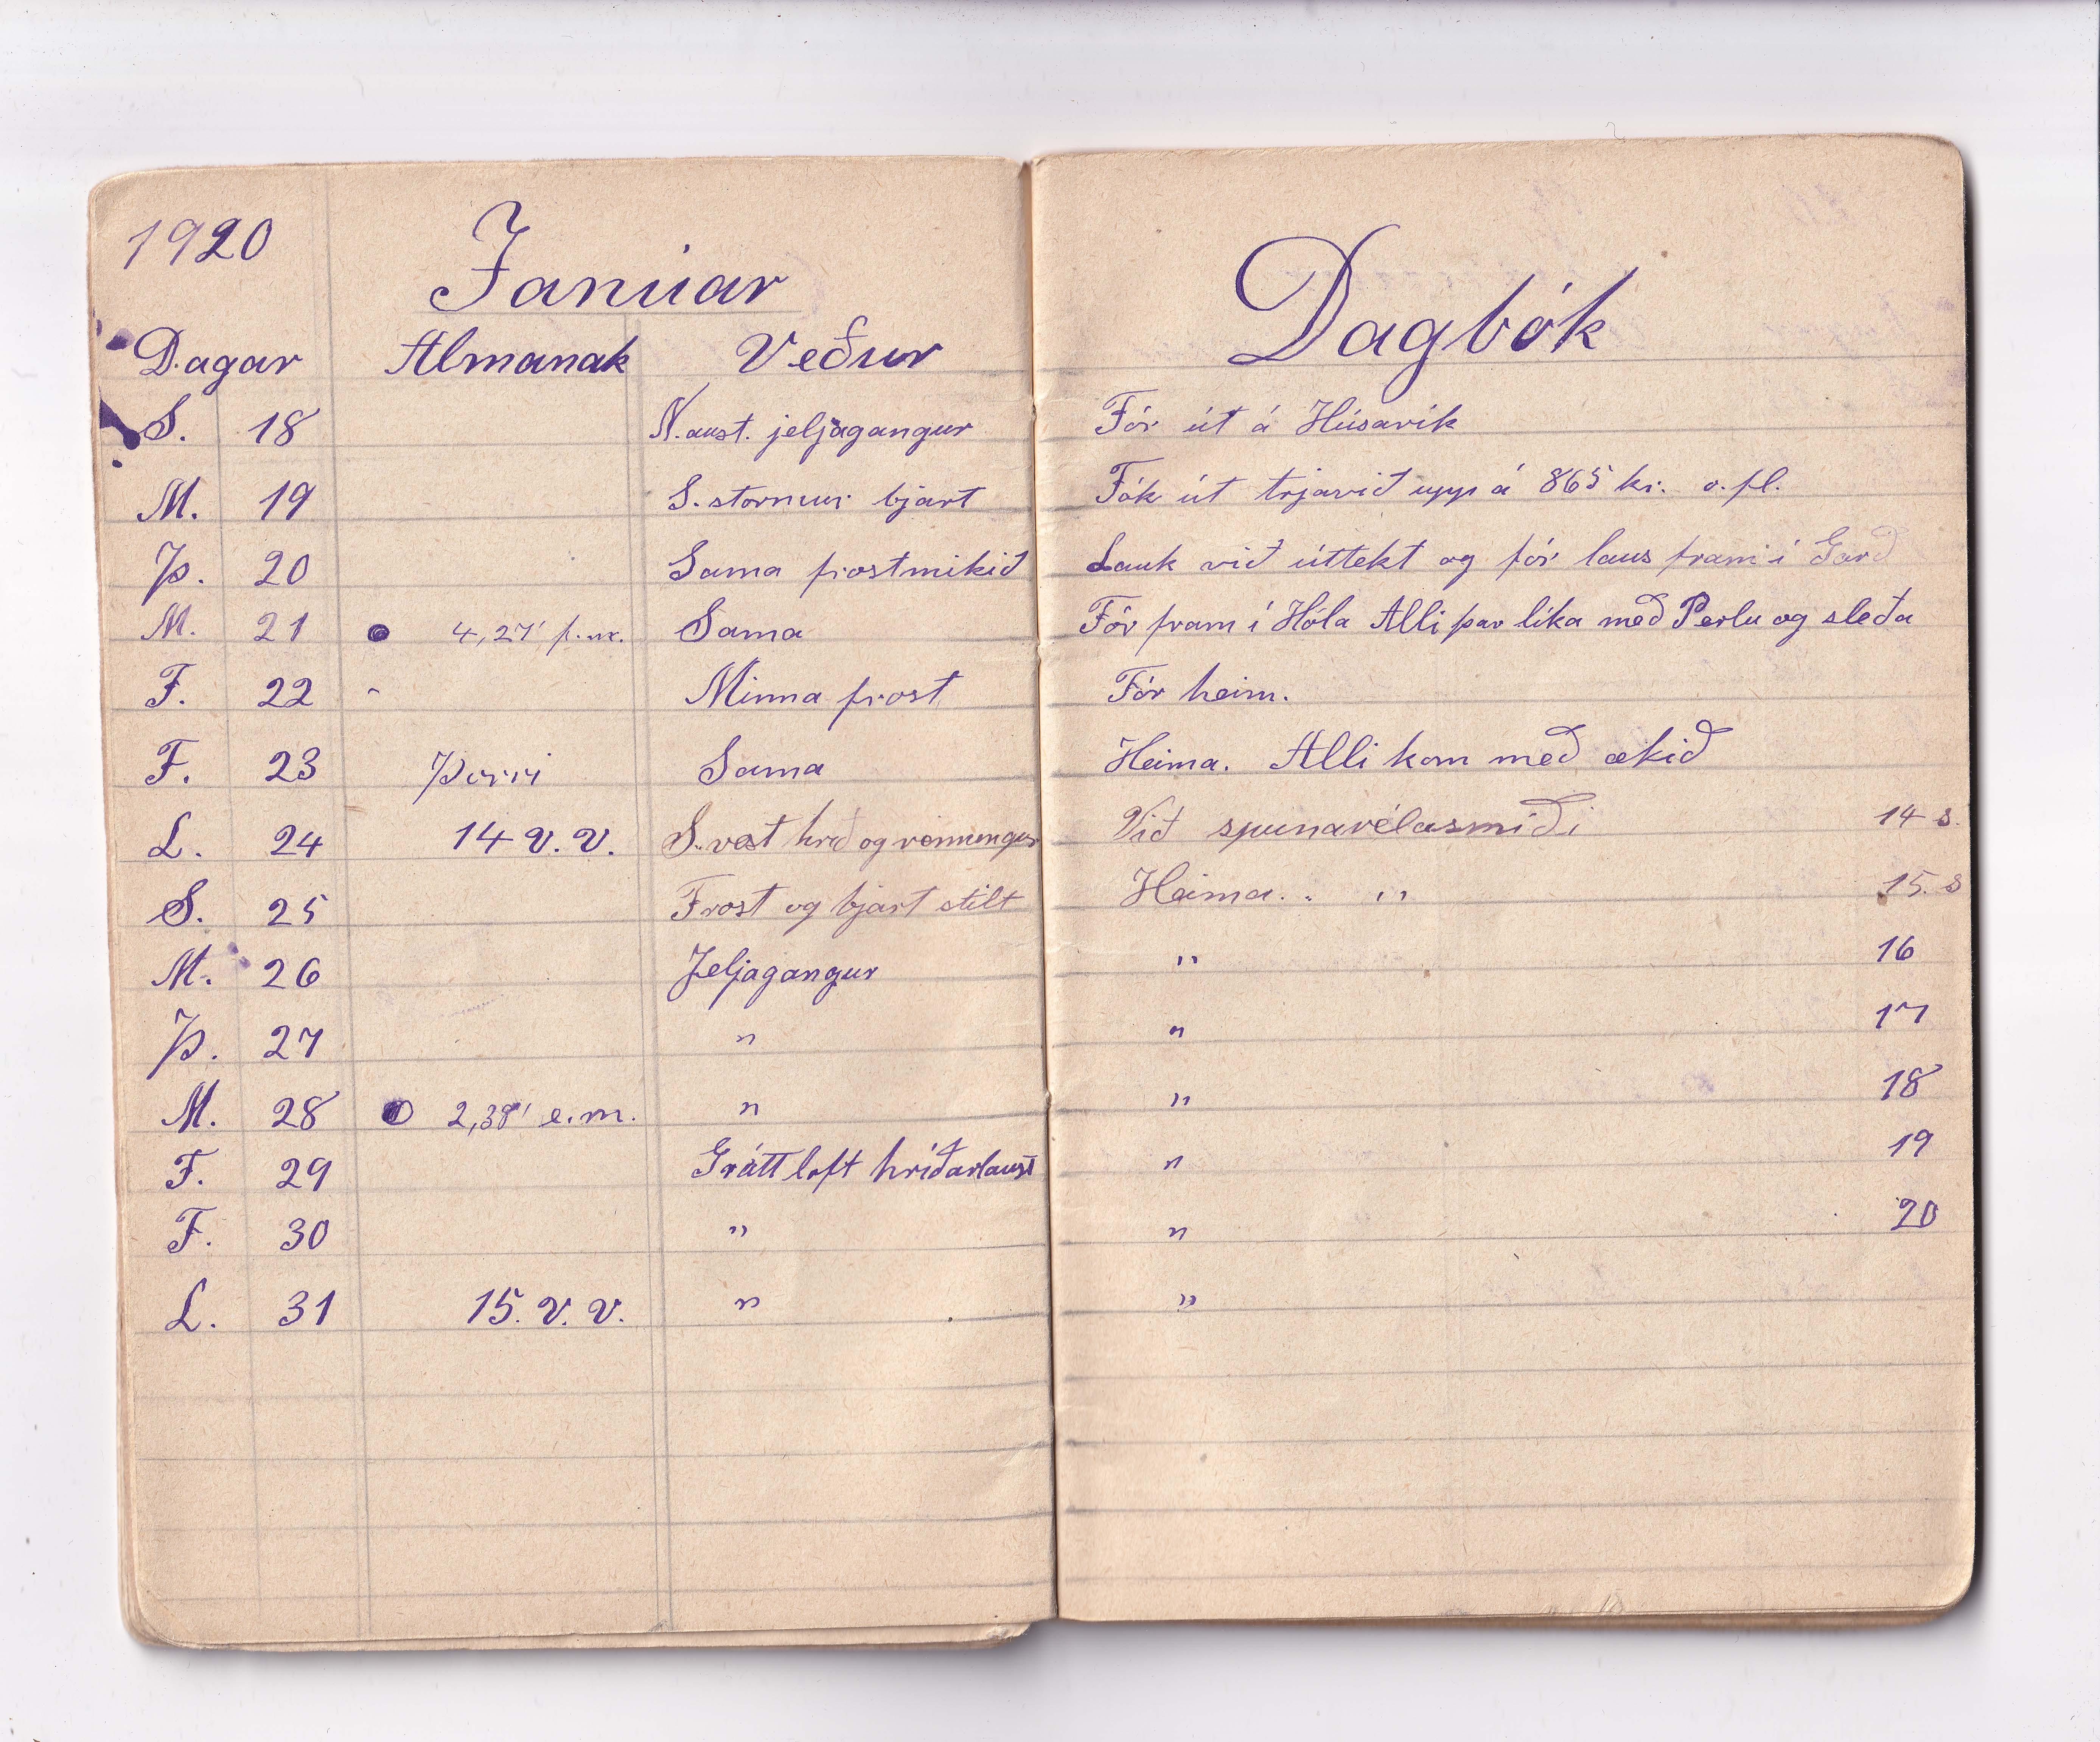 1920
Januar
Dagbók
Dagar Almanak Veður
S. 18 N.aust. jeljagangur Fór út á Húsavík
M. 19 S. stormur bjart Tók út trjavið upp á 865 kr. o.fl.
Þ. 20 Sama frostmikið Lauk við úttekt og fór laus fram í Garð
M. 21 4,27' f.m. Sama Fór fram í Hóla Alli þar líka með Perlu og sleða
F. 22 Minna frost Fór heim.
F. 23 Þorri Sama Heima. Alli kom með ækið
L. 24 14 v. v. S.vest hríð og renningur Við spunavélasmíði 14 s.
S. 25 Frost og bjart stilt Heima. . " 15. s
M. 26 Jeljagangur " 16
Þ. 27 " " 17
M. 28 2,38' e.m. " " 18
F. 29 Grátt loft hríðarlaust " 19
F. 30 " " 20
L. 31 15. v. v. " "